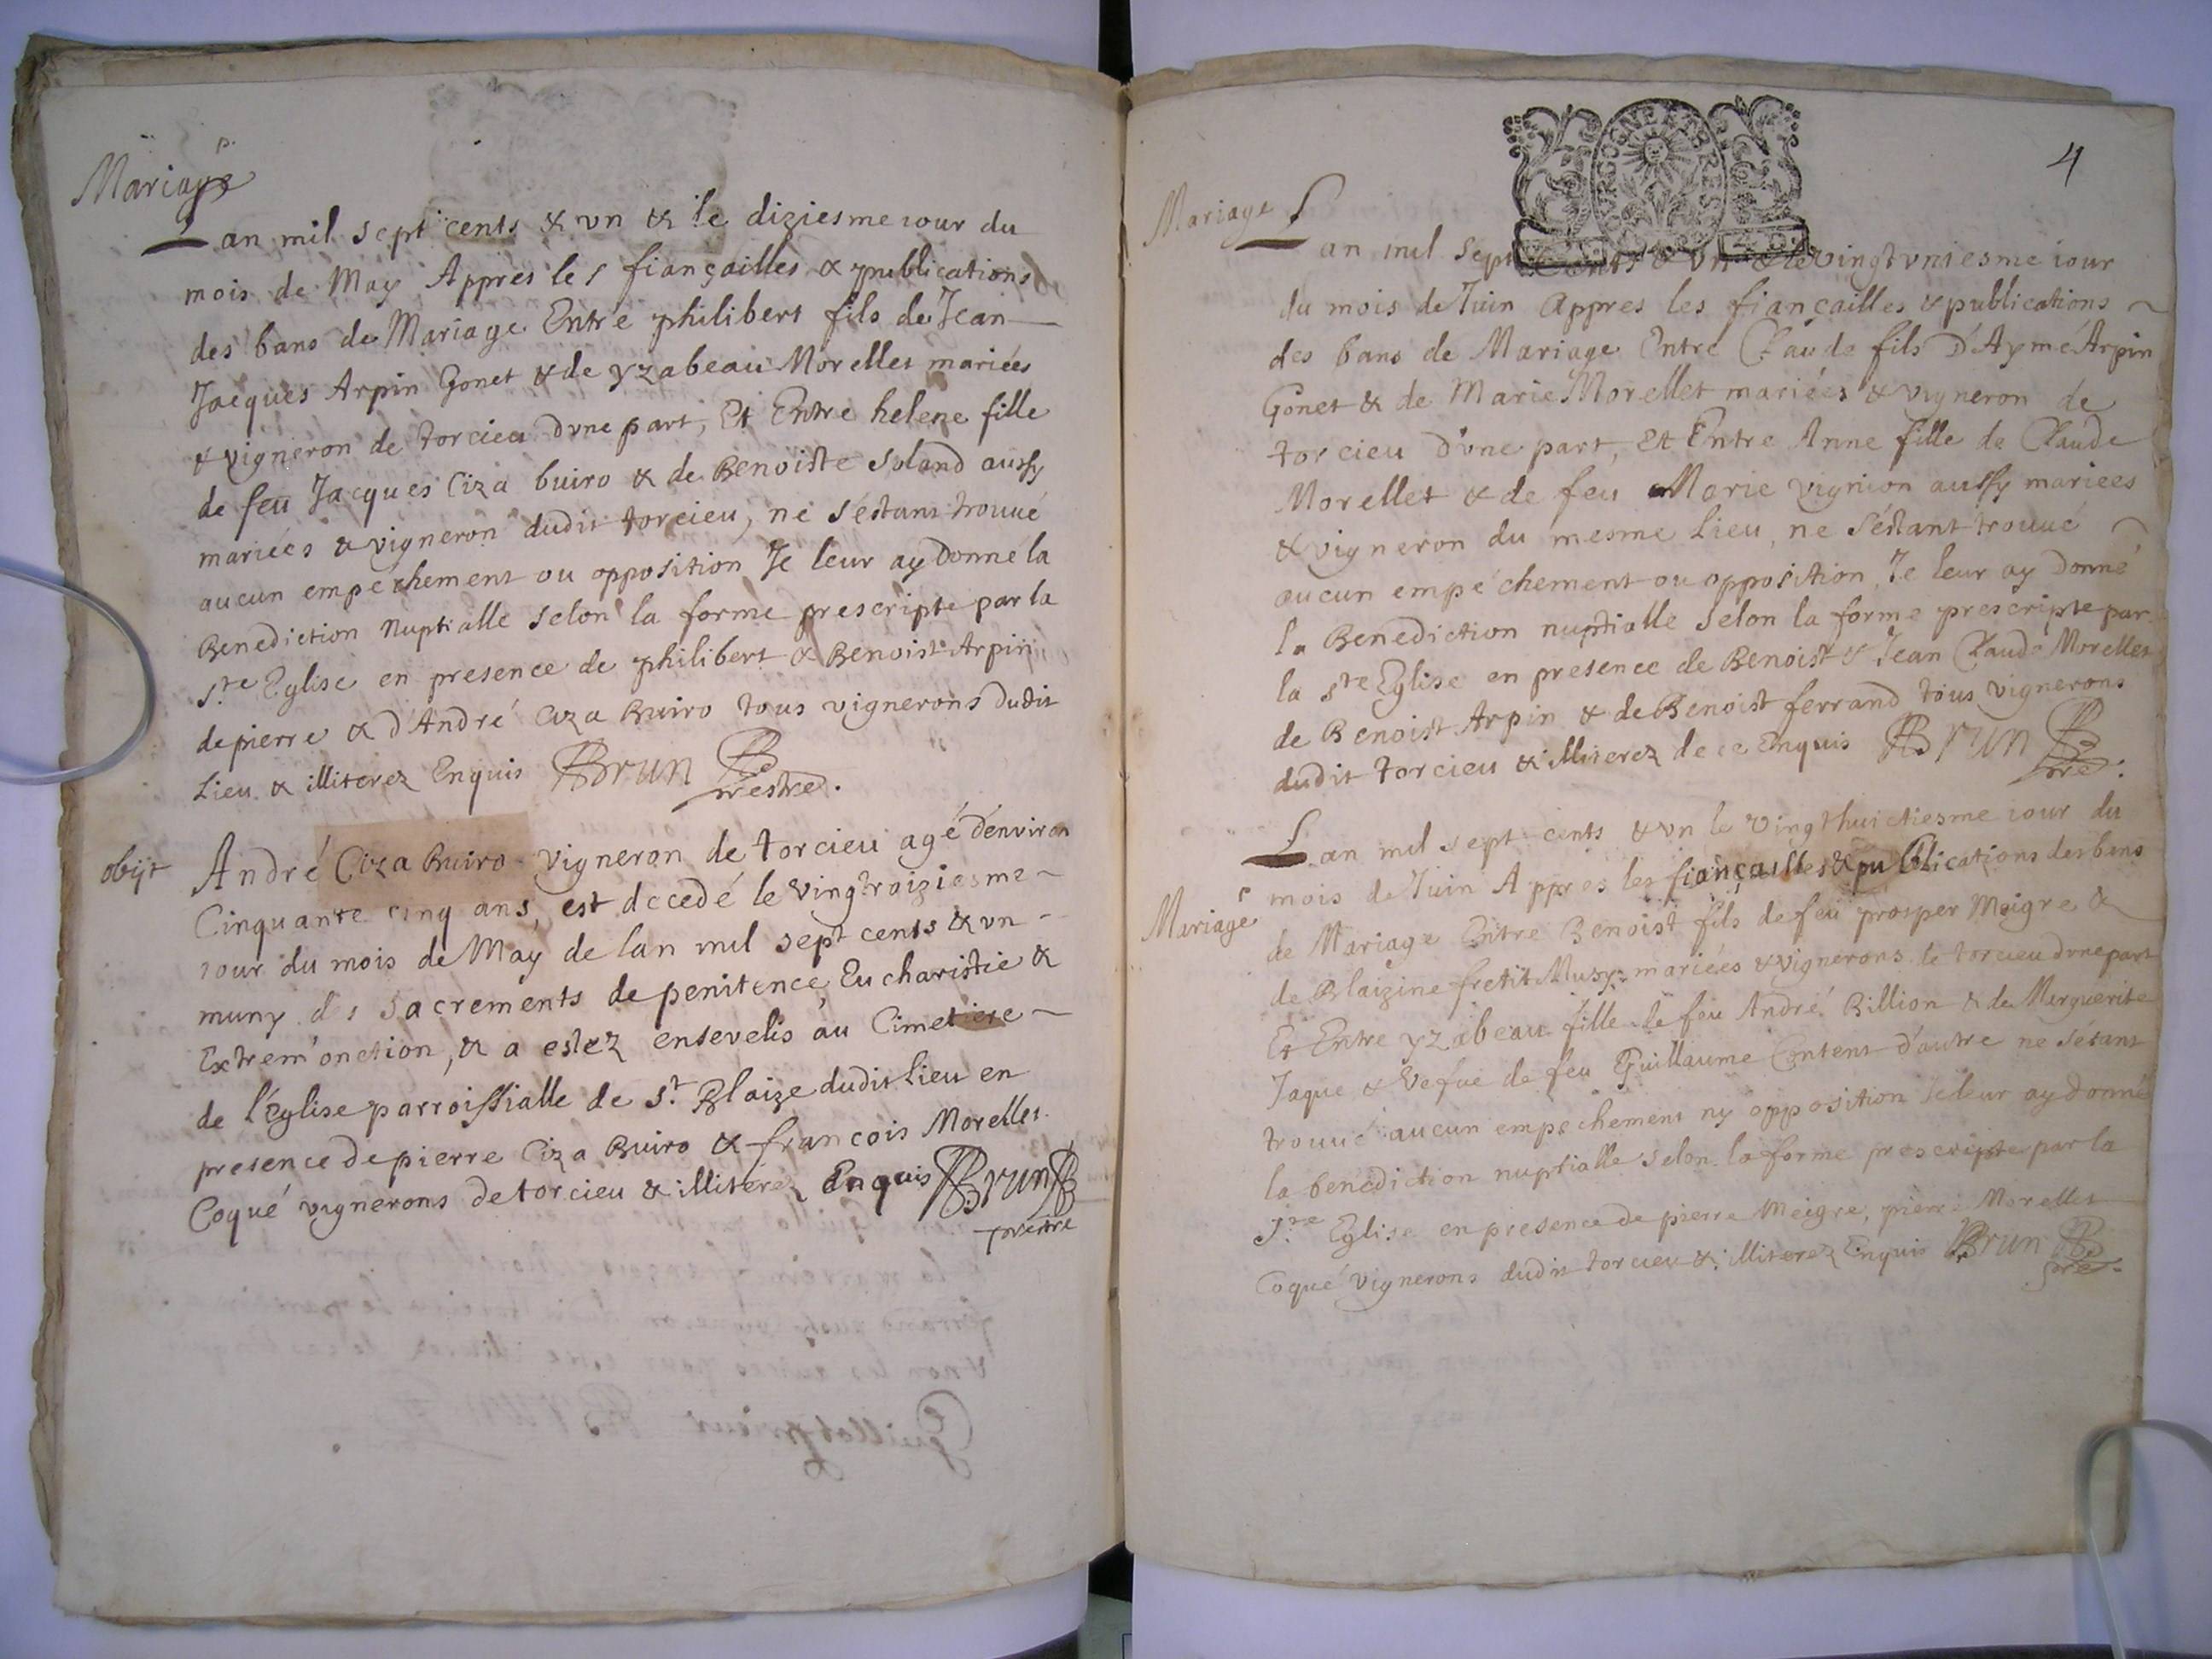 Mariage
Lan mil sept cents & vn & le diziesme iour du
mois de May Appres les fiançailles & publications
des bans de Mariage Entre philibert fils de Jean
Jacques Arpin Gonet & de yzabeau Morellet mariées
& vigneron de torcieu dvne part, Et Entre helene fille
de feu Jacques Ciza buiro & de Benoiste soland aussy
mariées & vigneron dudit torcieu, ne s'éstant trouué
aucun empéchement ou opposition Je leur ay donné la
Benediction nuptialle selon la forme prescripte par la
Ste Eglise en presence de philibert & Benoist Arpin
de pierre & d'André Ciza Buiro tous vignerons dudit
Lieu & illiterez Enquis Brun
Prestre.
obijt
André Ciza Buiro vigneron de torcieu agé d'environ
Cinquante cinq ans, est decedé le vingtroiziesme
iour du mois de May de lan mil sept cents & vn
muny des Sacrements de penitence, Eucharistie &
Extrem'onction, & a estez ensevelis au Cimetiere
de l'église parroissialle de St Blaize dudit Lieu en
presence de pierre Ciza Buiro & francois Morellet
Coqué vignerons de torcieu & illiterez Enquis Brun
prestre
4
Mariage
Lan mil sept cents & vn & le vingt vniesme iour
du mois de Juin Appres les fiançailles & publications
des bans de Mariage Entre Claude fils D'Aymé Arpin
Gonet & de Marie Morellet mariées & vigneron de
torcieu d'vne part, Et Entre Anne fille de Claude
Morellet & de feu Marie vignion aussy mariées
& vigneron du mesme Lieu, ne s'éstant trouué
aucun empéchement ou opposition, Je leur ay donné
la Benediction nuptialle selon la forme prescripte par
la Ste Eglise en presence de Benoist & Jean Claude Morellet
de Benoist Arpin & de Benoist ferrand tous vignerons
dudit torcieu & illiterez de ce Enquis Brun
pre.
Mariage
Lan mil sept cents & vn le vingthuictiesme iour du
mois de Juin Appres les fiançailles & publications des bans
de Mariage Entre Benoist fils de feu prosper Meigre &
de Blaizine fretit Musy mariées & vignerons de torcieu dvne part
Et Entre yzabeau fille de feu André Billion & de Marguerite
Jaque & Vefue de feu Guillaume Content d'autre ne s'étant
trouué aucun empechement ny opposition Je leur ay donné
la benediction nuptialle selon la forme prescripte par la
Ste Eglise en presence de pierre Meigre, pierre Morellet
Coqué vignerons dudit torcieu & illiterez Enquis Brun
pre.